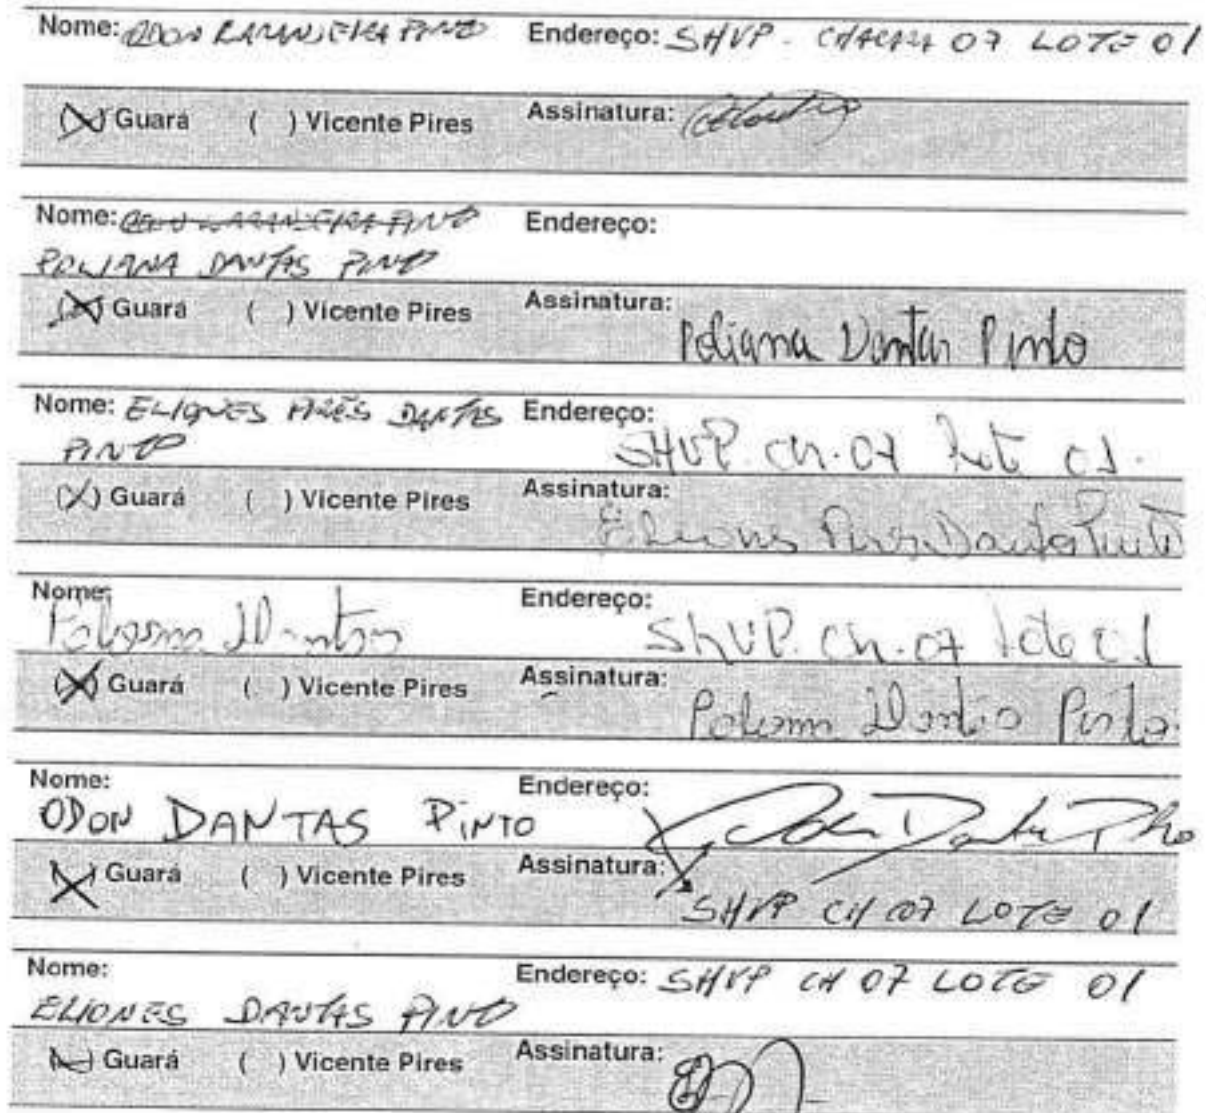 Nome: ODON LARANJEIRA PINTO Endereço: SHVP - CHACARA 07 LOTE 01
(X) Guará ( ) Vicente Pires Assinatura:
Nome: ODON LARANJEIRA PINTO Endereço:
POLIANA DANTAS PINTO
(X) Guará ( ) Vicente Pires Assinatura:
Poliana Dantas Pinto
Nome: ELIONES PIRES DANTAS Endereço:
PINTO SHVP. CH. 07 Lote 01.
(X) Guará ( ) Vicente Pires Assinatura:
Eliones Pires Dantas Pinto
Nome: Endereço:
Dantas ShVP. Ch. 07 lote 01
(X) Guará ( ) Vicente Pires Assinatura:
Dantas Pinto
Nome: Endereço:
ODON DANTAS PINTO Odon Dantas Pinto
(X) Guará ( ) Vicente Pires Assinatura:
SHVP CH 07 LOTE 01
Nome: Endereço: SHVP CH 07 LOTE 01
ELIONES DANTAS PINTO
(X) Guará ( ) Vicente Pires Assinatura: